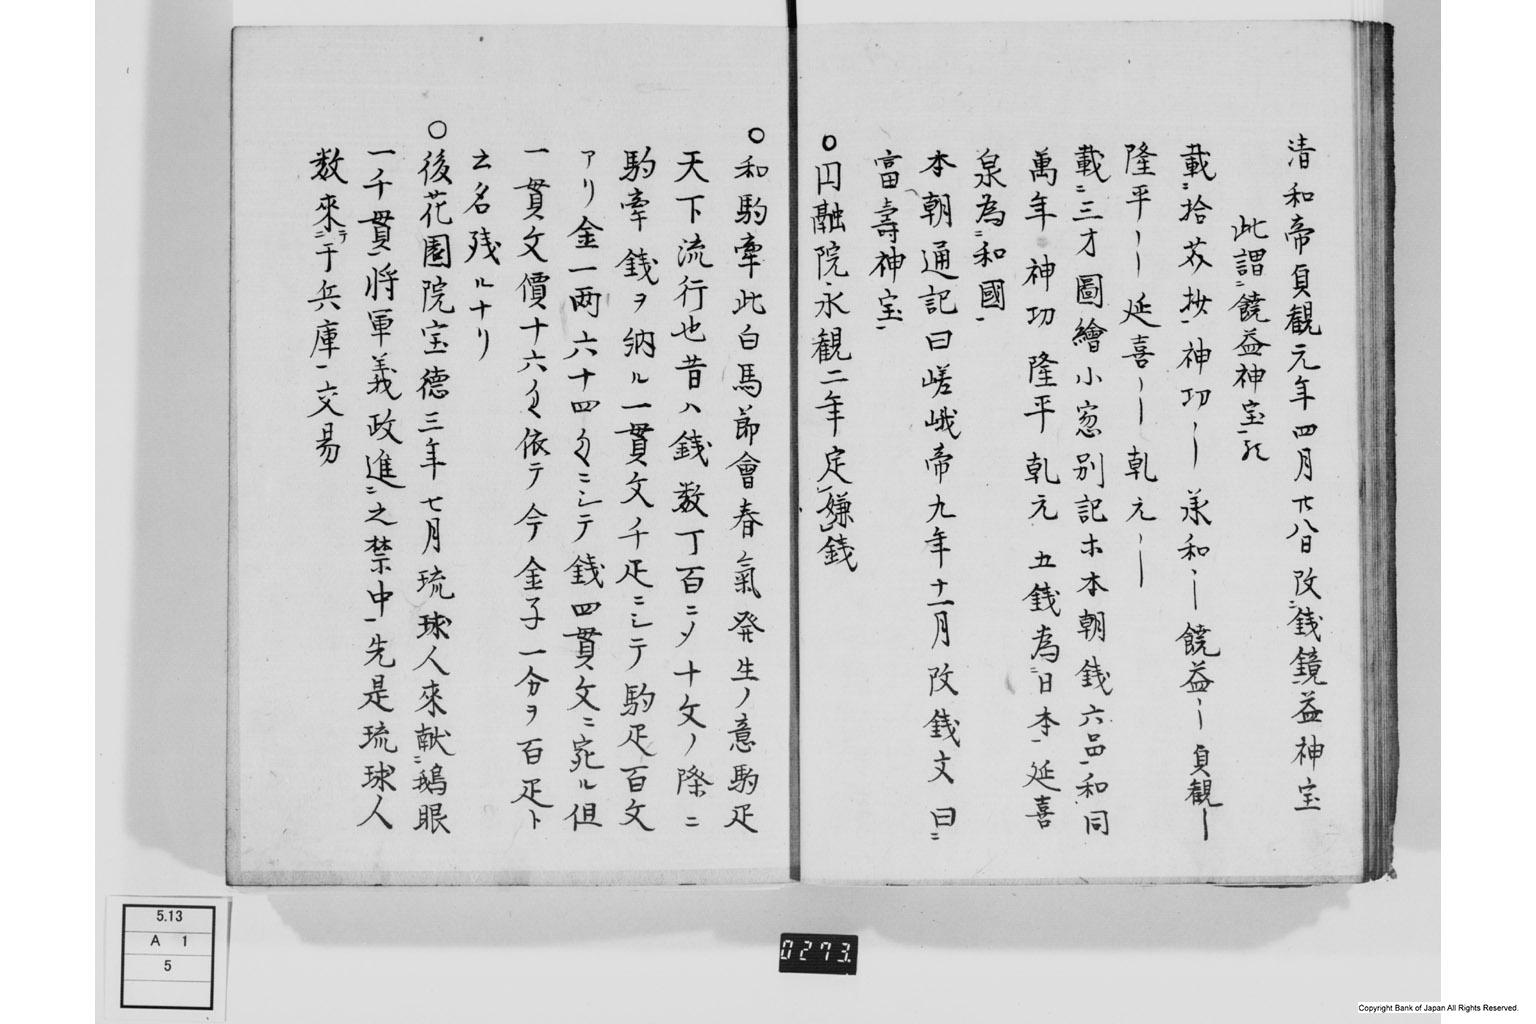 清和帝貞観元年四月廿八日改ニ銭鏡益神宝
此謂ニ饒益神宝一
載ニ拾芥抄一神功〡〡承和〡〡饒益〡〡貞観〡
隆平〡〡延喜〡〡乹元〡〡
載ニ三才圖繪小窓別記ホ本朝銭六品一和同
萬年 神功 隆平 乹元 五銭為ニ日本一延喜
泉為ニ和國一
本朝通記曰嵯峨帝九年十一月改銭文曰ニ
富壽神宝一
○円融院永観二年定嫌銭
○和駒牽此白馬節會春氣発生ノ意駒疋
天下流行也昔ハ銭数丁百ニメ十文ノ際ニ
駒牽銭ヲ納ル一貫文千疋ニシテ駒疋百文
アリ金一両六十四匁ニシテ銭四貫文ニ宛ル但
一貫文價十六匁依テ今金子一分ヲ百疋ト
云名残ルナリ
○後花園院宝德三年七月琉球人來献ニ鵝眼
一千貫一將軍義政進ニ之禁中一先是琉球人
数來ニテ于兵庫一交易
0273.
5.13
A 1
5
Copyright Bank of Japan All Rights Reserved.